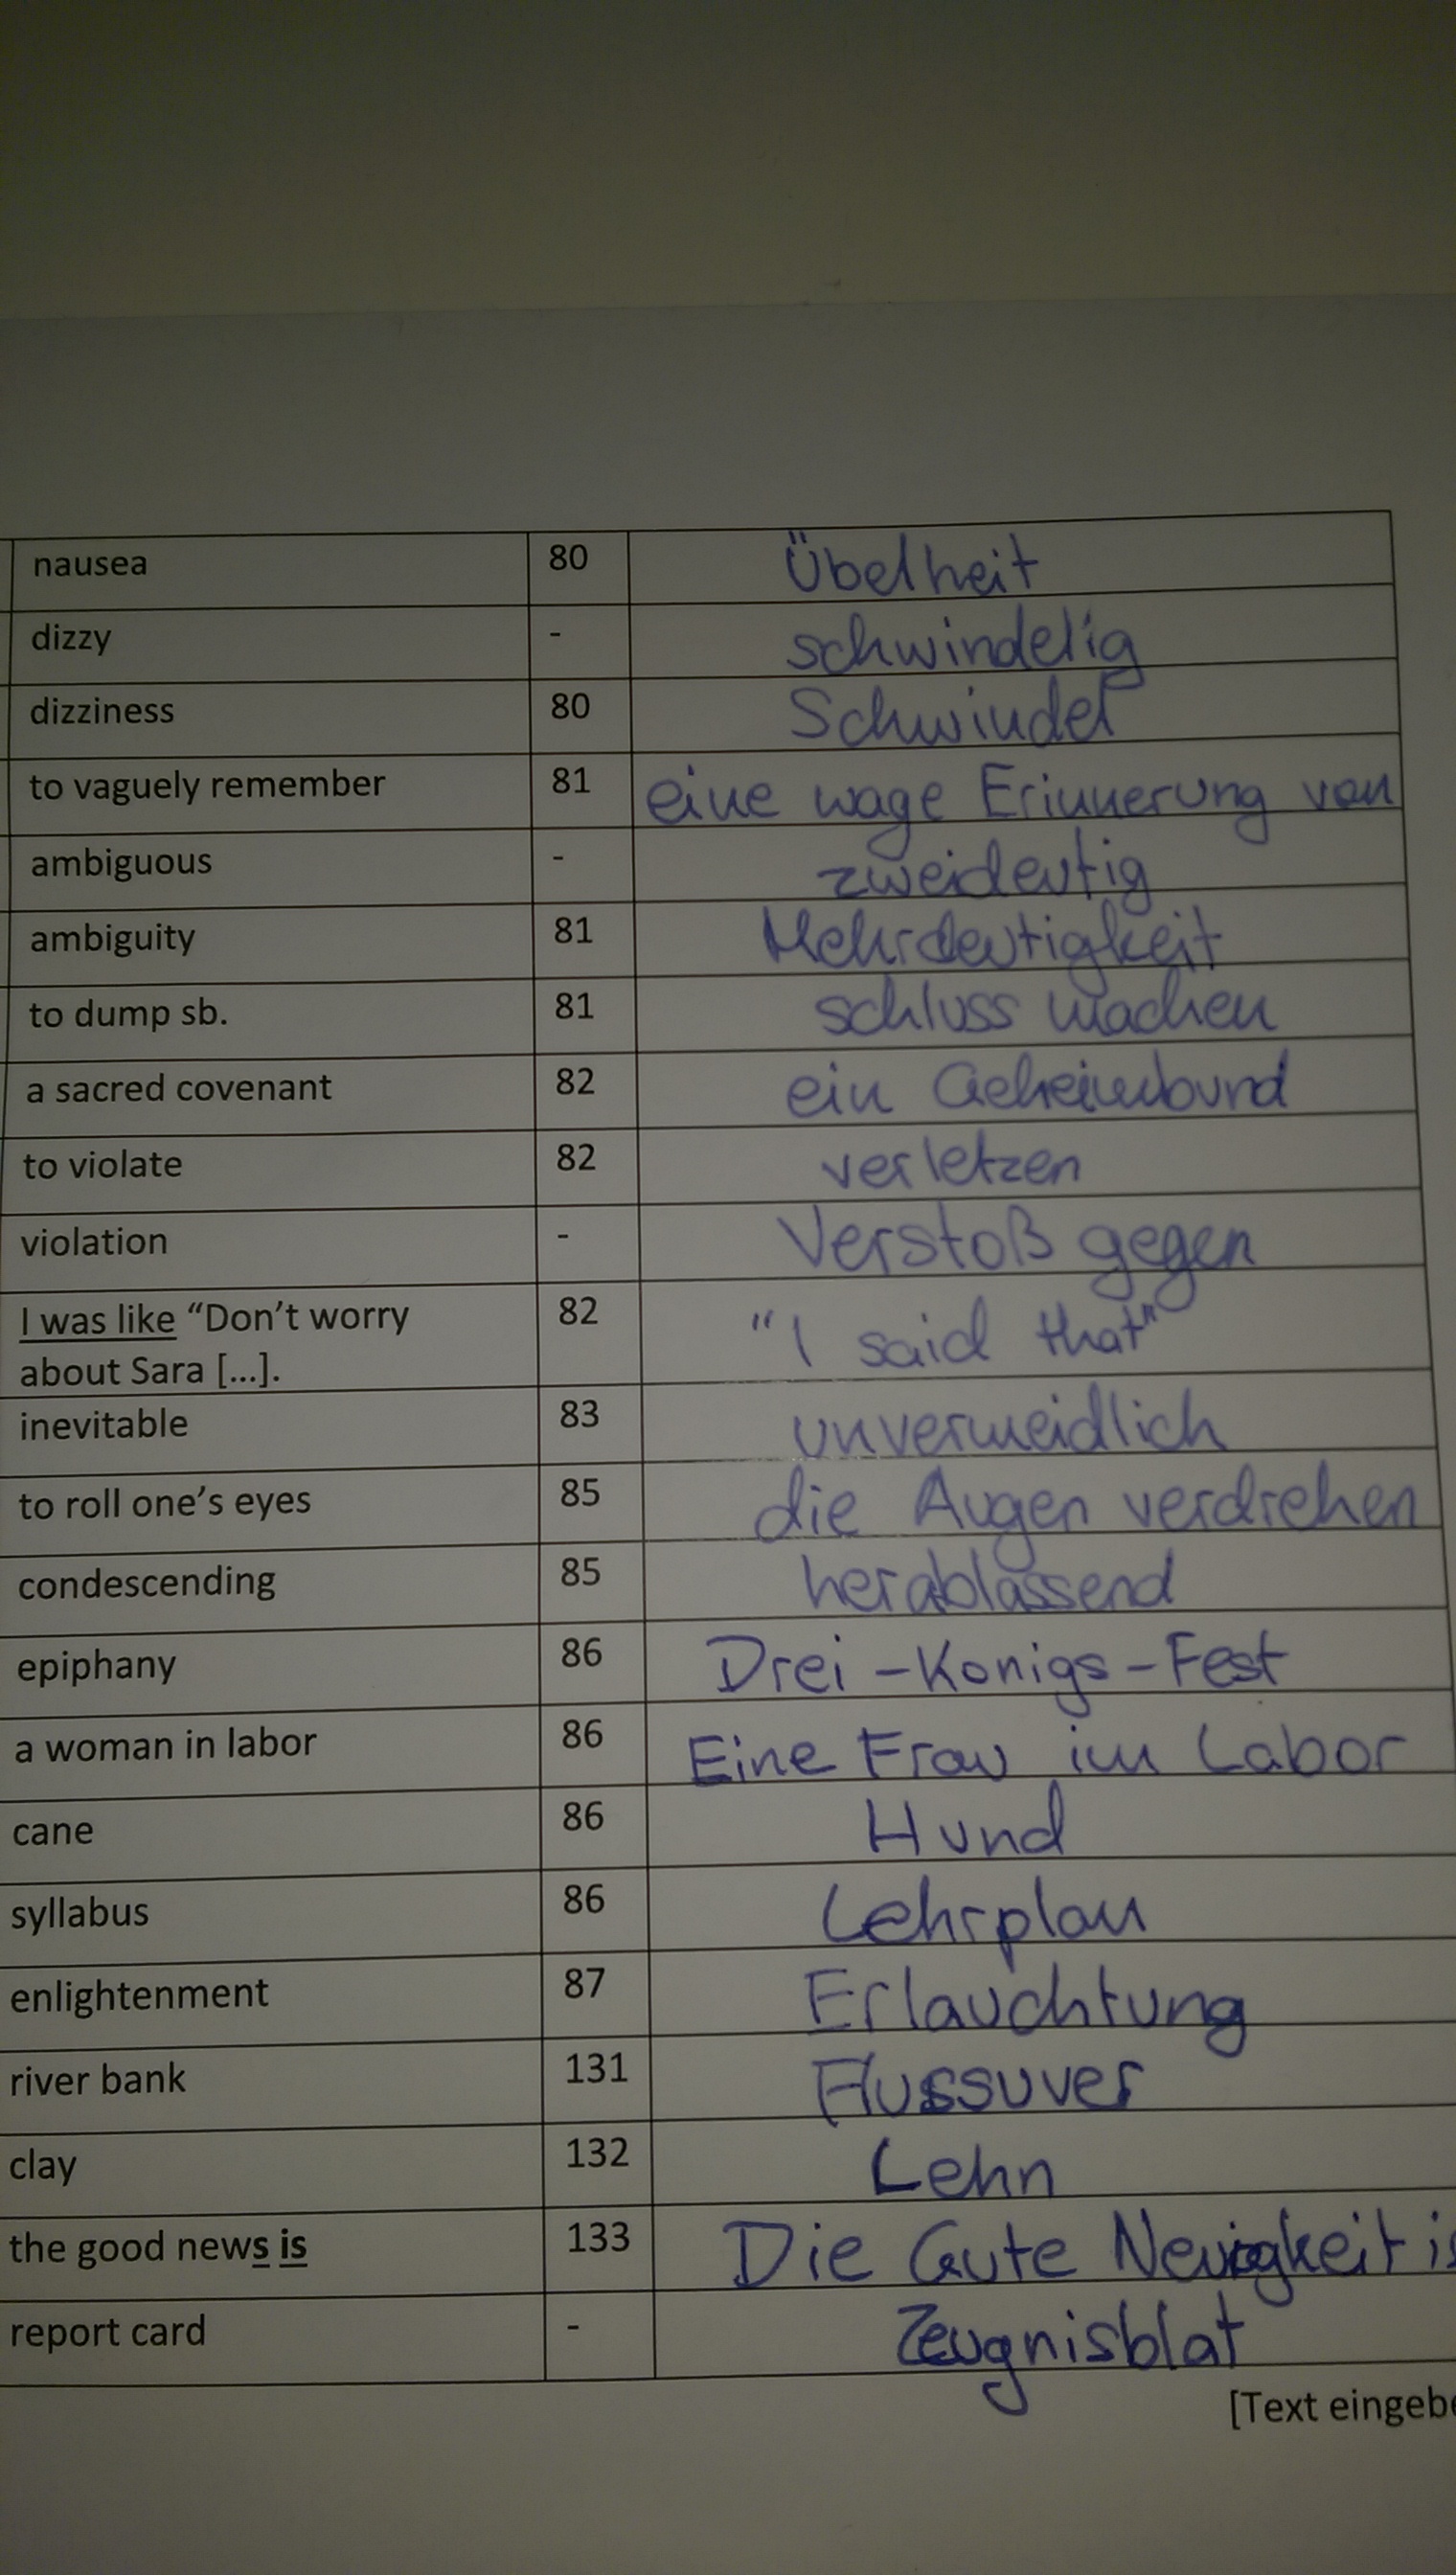 nausea 80 Übelheit
dizzy - schwindelig
dizziness 80 Schwindel
to vaguely remember 81 eine wage Erinnerung von
ambiguous - zweideutig
ambiguity 81 Mehrdeutigkeit
to dump sb. 81 schluss machen
a sacred covenant 82 ein Geheimbund
to violate 82 verletzen
violation - Verstoß gegen
I was like “Don’t worry 82 "I said that"
about Sara [...].
inevitable 83 unvermeidlich
to roll one’s eyes 85 die Augen verdrehen
condescending 85 herablassend
epiphany 86 Drei-Konigs-Fest
a woman in labor 86 Eine Frau im Labor
cane 86 Hund
syllabus 86 Lehrplan
enlightenment 87 Erlauchtung
river bank 131 Flussuver
clay 132 Lehn
the good news is 133 Die Gute Neuigkeit is
report card - Zeugnisblat
[Text eingebe